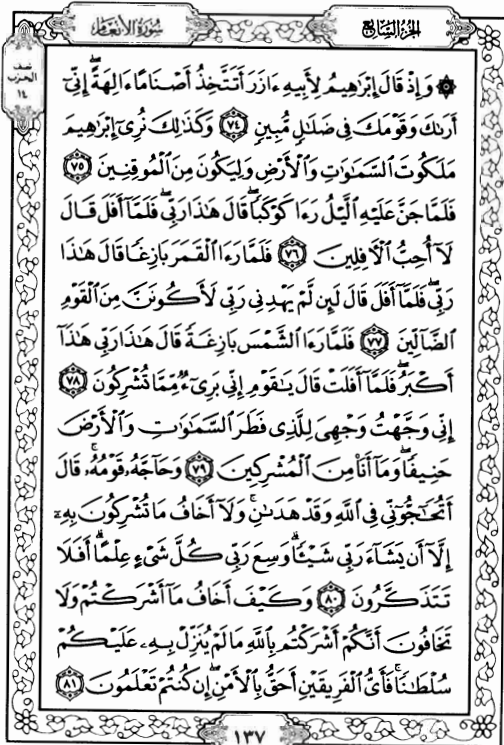 سُورَةُ الأَنْعَامِ
الجُزْءُ السَّابِعُ
نصف
الحزب
١٤
۞ وَإِذْ قَالَ إِبْرَٰهِيمُ لِأَبِيهِ ءَازَرَ أَتَتَّخِذُ أَصْنَامًا ءَالِهَةً ۖ إِنِّىٓ
أَرَىٰكَ وَقَوْمَكَ فِى ضَلَٰلٍ مُّبِينٍ ﴿٧٤﴾ وَكَذَٰلِكَ نُرِىٓ إِبْرَٰهِيمَ
مَلَكُوتَ ٱلسَّمَٰوَٰتِ وَٱلْأَرْضِ وَلِيَكُونَ مِنَ ٱلْمُوقِنِينَ ﴿٧٥﴾
فَلَمَّا جَنَّ عَلَيْهِ ٱلَّيْلُ رَءَا كَوْكَبًا ۖ قَالَ هَٰذَا رَبِّى ۖ فَلَمَّآ أَفَلَ قَالَ
لَآ أُحِبُّ ٱلْءَافِلِينَ ﴿٧٦﴾ فَلَمَّا رَءَا ٱلْقَمَرَ بَازِغًا قَالَ هَٰذَا
رَبِّى ۖ فَلَمَّآ أَفَلَ قَالَ لَئِن لَّمْ يَهْدِنِى رَبِّى لَأَكُونَنَّ مِنَ ٱلْقَوْمِ
ٱلضَّآلِّينَ ﴿٧٧﴾ فَلَمَّا رَءَا ٱلشَّمْسَ بَازِغَةً قَالَ هَٰذَا رَبِّى هَٰذَآ
أَكْبَرُ ۖ فَلَمَّآ أَفَلَتْ قَالَ يَٰقَوْمِ إِنِّى بَرِىٓءٌ مِّمَّا تُشْرِكُونَ ﴿٧٨﴾
إِنِّى وَجَّهْتُ وَجْهِىَ لِلَّذِى فَطَرَ ٱلسَّمَٰوَٰتِ وَٱلْأَرْضَ
حَنِيفًا ۖ وَمَآ أَنَا۠ مِنَ ٱلْمُشْرِكِينَ ﴿٧٩﴾ وَحَآجَّهُۥ قَوْمُهُۥ ۚ قَالَ
أَتُحَٰٓجُّوٓنِّى فِى ٱللَّهِ وَقَدْ هَدَىٰنِ ۚ وَلَآ أَخَافُ مَا تُشْرِكُونَ بِهِۦٓ
إِلَّآ أَن يَشَآءَ رَبِّى شَيْـًٔا ۗ وَسِعَ رَبِّى كُلَّ شَىْءٍ عِلْمًا ۗ أَفَلَا
تَتَذَكَّرُونَ ﴿٨٠﴾ وَكَيْفَ أَخَافُ مَآ أَشْرَكْتُمْ وَلَا
تَخَافُونَ أَنَّكُمْ أَشْرَكْتُم بِٱللَّهِ مَا لَمْ يُنَزِّلْ بِهِۦ عَلَيْكُمْ
سُلْطَٰنًا ۚ فَأَىُّ ٱلْفَرِيقَيْنِ أَحَقُّ بِٱلْأَمْنِ ۖ إِن كُنتُمْ تَعْلَمُونَ ﴿٨١﴾
١٣٧